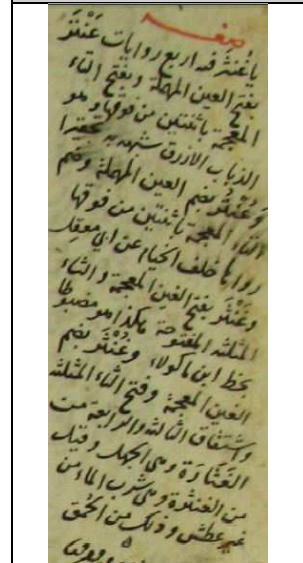 صغـــير
يا غُنثَر فيه اربع روايات عَنْتَر
بفتح العين المهملة وبفتح التاء
المعجمة باثنتين من فوقها وهو
الذباب الازرق شبهه به تحقيرا
وعُنْتُر بضم العين المهملة وضم
التاء المعجمة باثنتين من فوقها
رواها خلف الخيام عن ابي معقل
وغَنْثَر بفتح الغين المعجمة والثاء
المثلثة المفتوحة هكذا هو مضبوطا
بخط ابن ماكولا وغُنْثَر بضم
الغين المعجمة وفتح الثاء المثلثة
واشتقاق الثالثة والرابعة من
الغَثَارَة وهي الجهل وقيل
من الغنثرة وهي شرب الماء من
غير عطش وذلك من الحُمْق